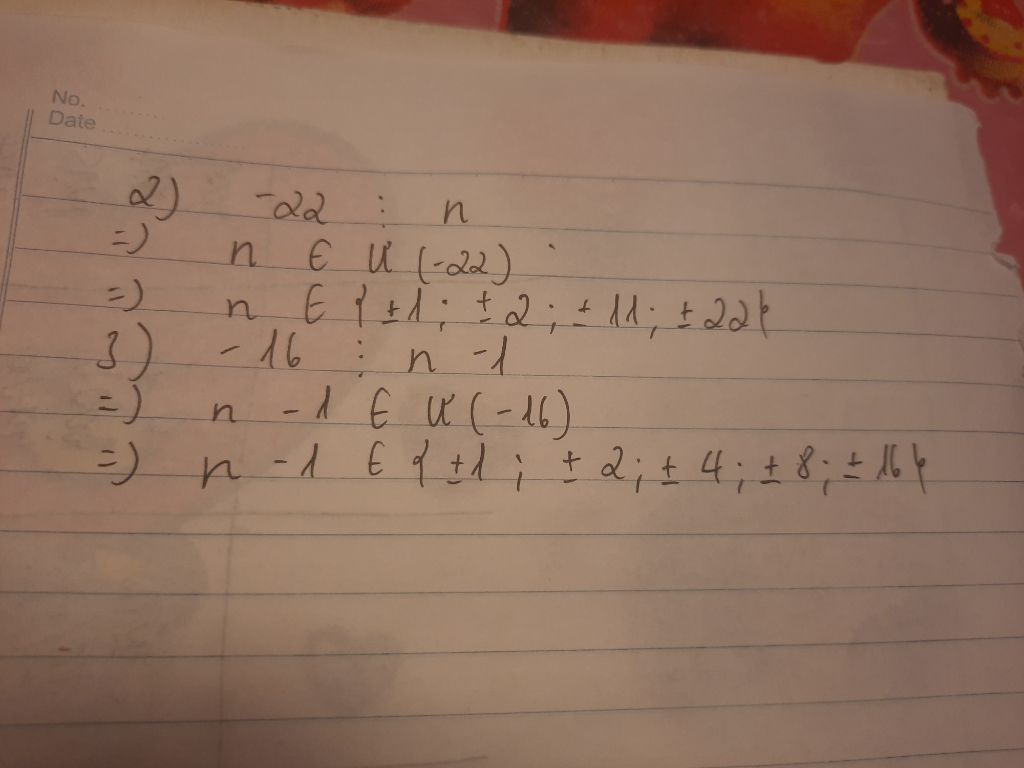 No.
Date
2) -22 ⋮ n
=) n ∈ Ư (-22)
=) n ∈ { ±1 ; ± 2 ; ± 11 ; ± 22 }
3) - 16 ⋮ n - 1
=) n - 1 ∈ Ư ( -16)
=) n - 1 ∈ { ±1 ; ± 2 ; ± 4 ; ± 8 ; ± 16 }